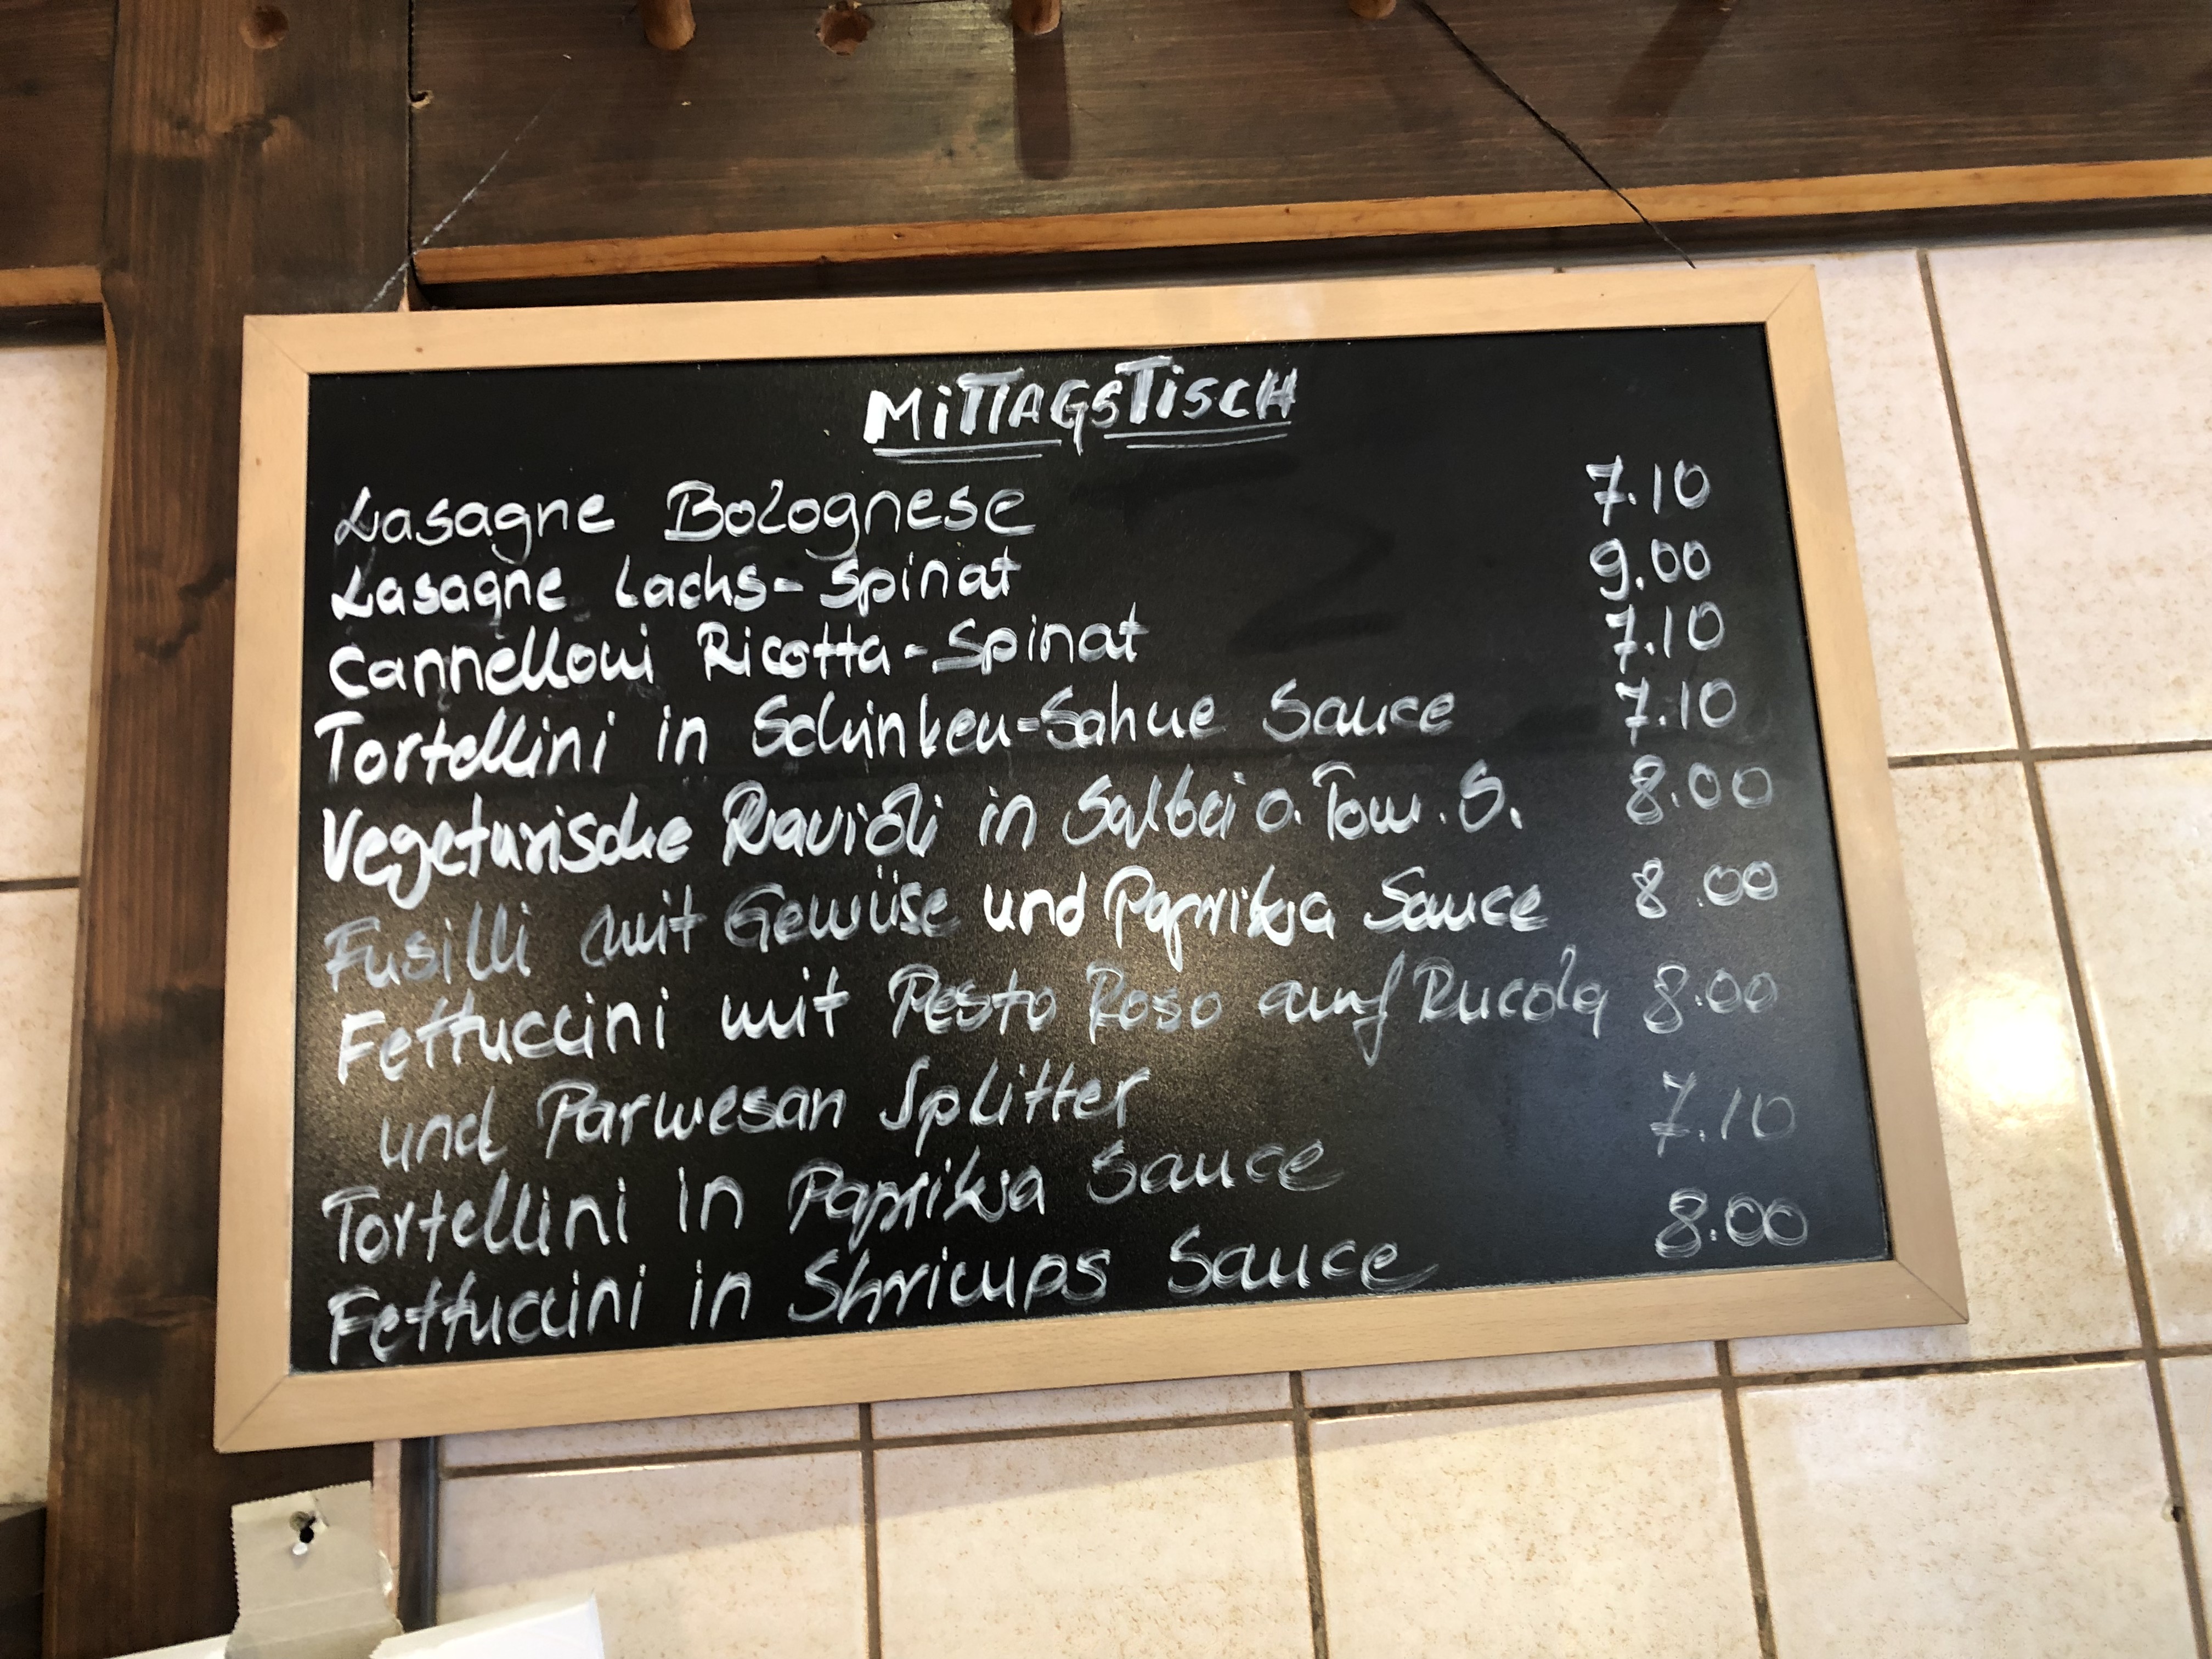 MiTTAGSTiSCH
Lasagne Bolognese 7.10
Lasagne Lachs-Spinat 9.00
Cannelloni Ricotta-Spinat 7.10
Tortellini in Schinken-Sahne Sauce 7.10
Vegetarische Ravioli in Salbei o. Tom. S. 8.00
Fusilli mit Gewüse und Paprika Sauce 8.00
Fettuccini mit Pesto Roso auf Rucola 8.00
und Parmesan Splitter
Tortellini in Paprika Sauce 7.10
Fettuccini in Shrimps Sauce 8.00